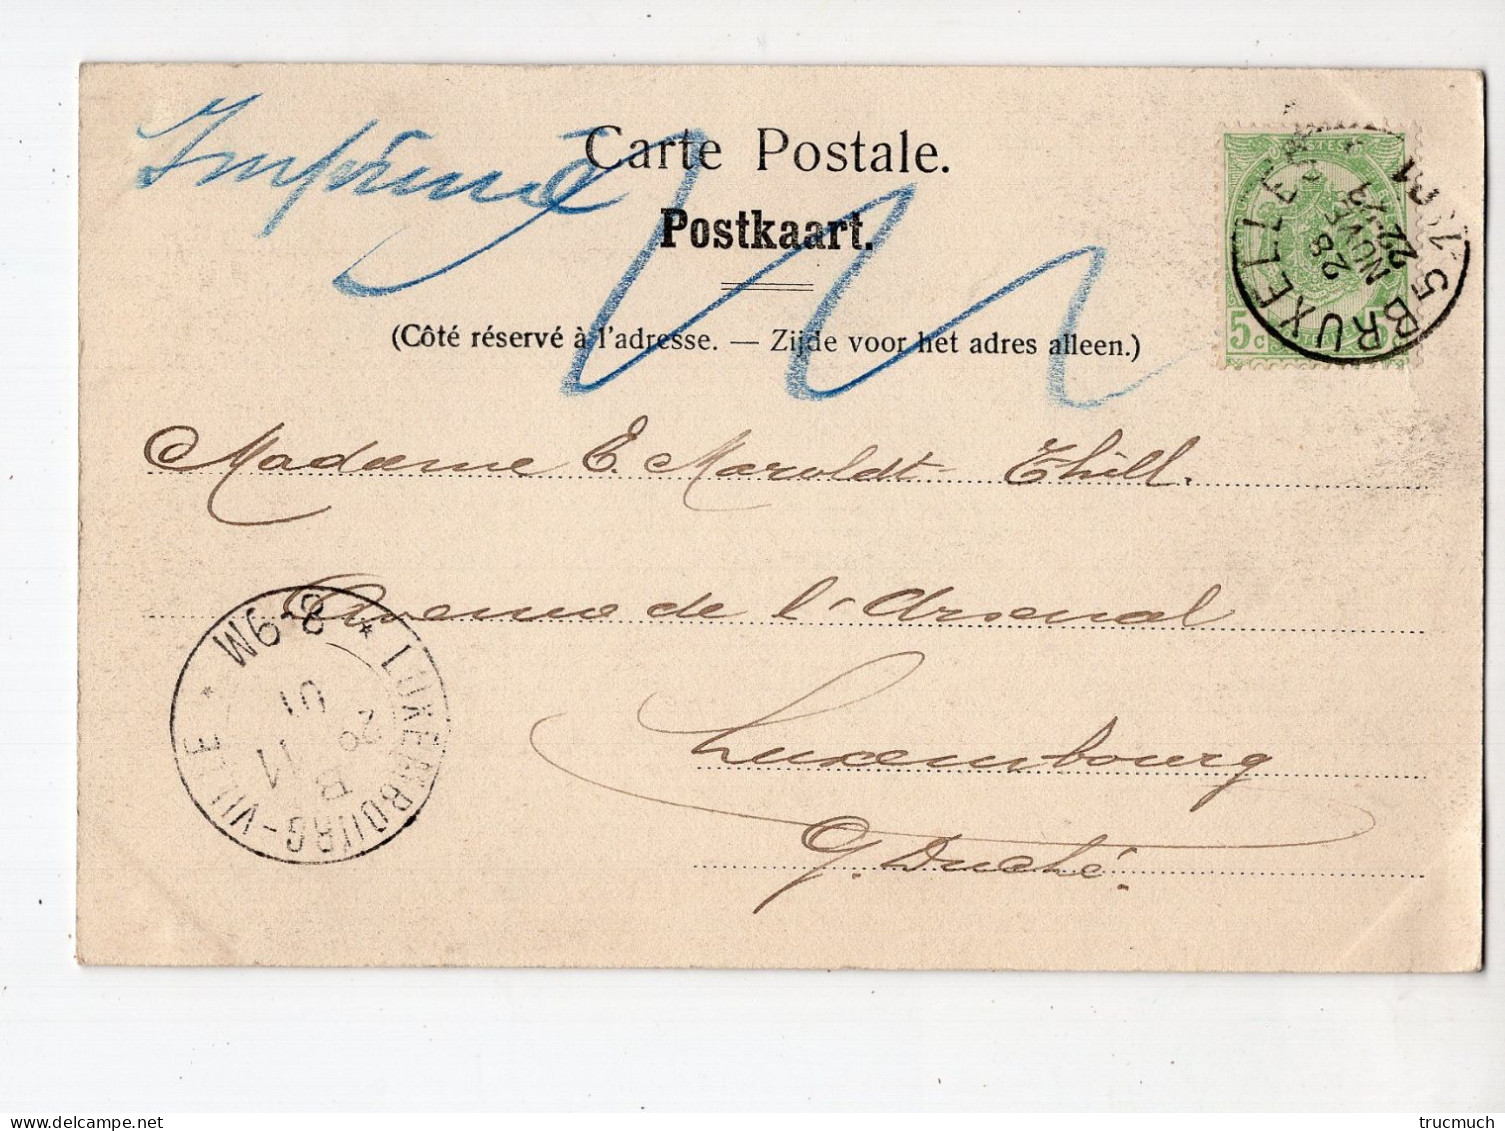 Imprimé
Carte Postale.
Postkaart.
(Côté réservé à l'adresse. — Zijde voor het adres alleen.)
5 BRUXELLES
28
NOVE
22
5 c
Madame E. Maroldt-Thill.
Avenue de l'Arsenal
Luxembourg
G. Duché.
LUXEMBOURG-VILLE * 8-9M *
29
11
01
B
trucmuch